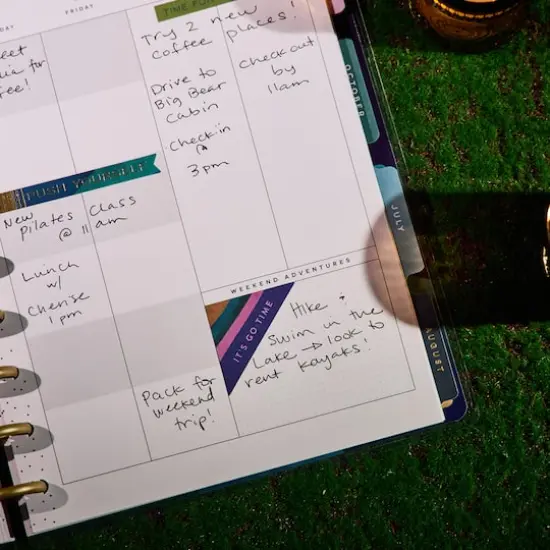 FRIDAY
eet
ia for
ee!
PUSH YOURSELF
New
Pilates Class
@ 11 am
Lunch
w/
Cherise
1 pm
Pack for
weekend
trip!
TIME FOR
Try 2 new
coffee places!
Drive to
Big Bear
Cabin
Check in
@
3pm
Check out
by
11am
WEEKEND ADVENTURES
IT'S GO TIME
Hike +
Swim in the
Lake → look to
rent kayaks!
OCTOBER
JULY
AUGUST